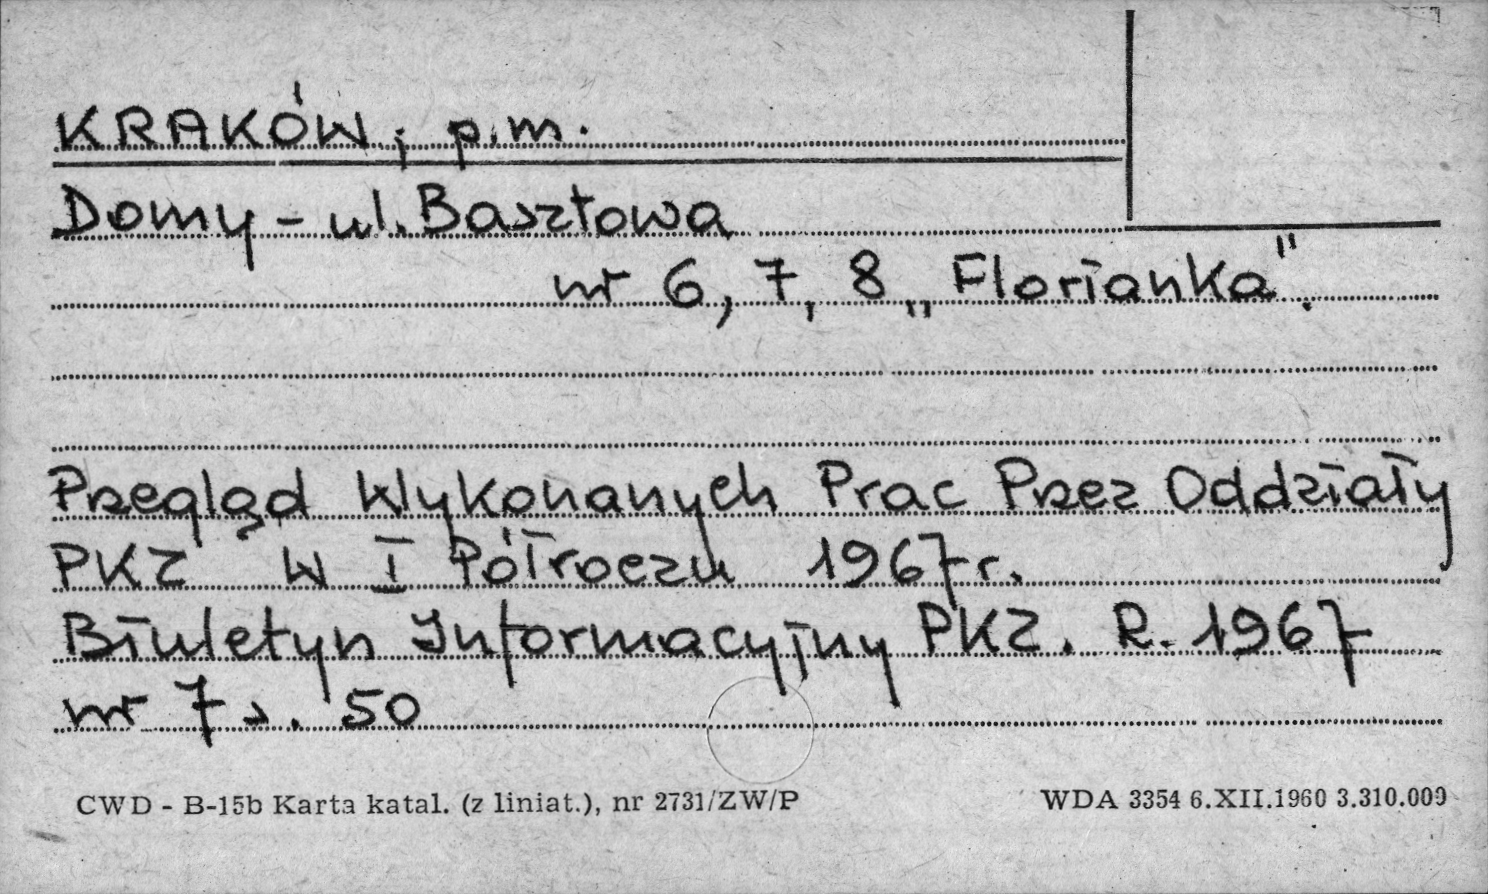 KRAKÓW; p.m.
Domy - ul. Basztowa
nr 6, 7, 8 „Florianka".
Przegląd Wykonanych Prac Przez Oddziały
PKZ w I Półroczu 1967 r.
Biuletyn Informacyjny PKZ. R. 1967
nr 7 s. 50
CWD - B-15b Karta katal. (z liniat.), nr 2731/ZW/P
WDA 3354 6.XII.1960 3.310.000